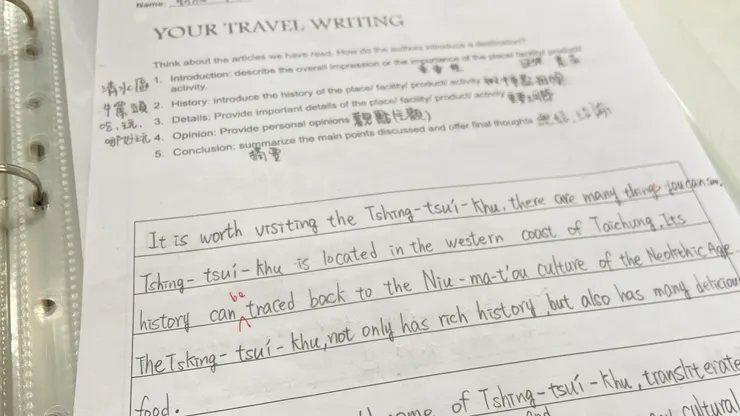 Name:
YOUR TRAVEL WRITING
Think about the articles we have read. How do the authors introduce a destination?
清水區 1. Introduction: describe the overall impression or the importance of the place/ facility/ product/
activity. 重要性
牛罵頭 2. History: introduce the history of the place/ facility/ product/ activity
吃、玩、 3. Details: Provide important details of the place/ facility/ product/ activity
哪好玩 4. Opinion: Provide personal opinions 觀點
5. Conclusion: summarize the main points discussed and offer final thoughts 總結
摘要
It is worth visiting the Tshing-tsuí-khu, there are many things you can see.
Tshing-tsuí-khu is located in the western coast of Taichung. Its
history can be traced back to the Niu-ma-t'ou culture of the Neolithic Age.
The Tsking-tsuí-khu, not only has rich history, but also has many deliciou
food.
name of Tshing-tsuí-khu, transliterate
cultural